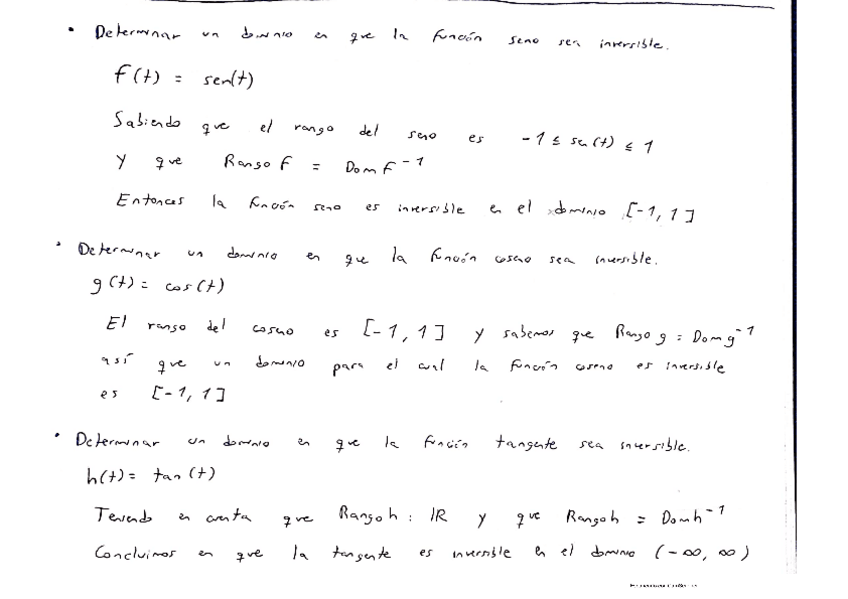 • Determinar un dominio en que la función seno sea inversible.
f(t) = sen(t)
Sabiendo que el rango del seno es -1 ≤ sen(t) ≤ 1
y que Rango f = Dom f⁻¹
Entonces la función seno es inversible en el dominio [-1, 1]
• Determinar un dominio en que la función coseno sea inversible.
g(t) = cos(t)
El rango del coseno es [-1, 1] y sabemos que Rango g = Dom g⁻¹
así que un dominio para el cual la función coseno es inversible
es [-1, 1]
• Determinar un dominio en que la función tangente sea inversible.
h(t) = tan(t)
Teniendo en cuenta que Rango h : IR y que Rango h = Dom h⁻¹
Concluimos en que la tangente es inversible en el dominio (-∞, ∞)